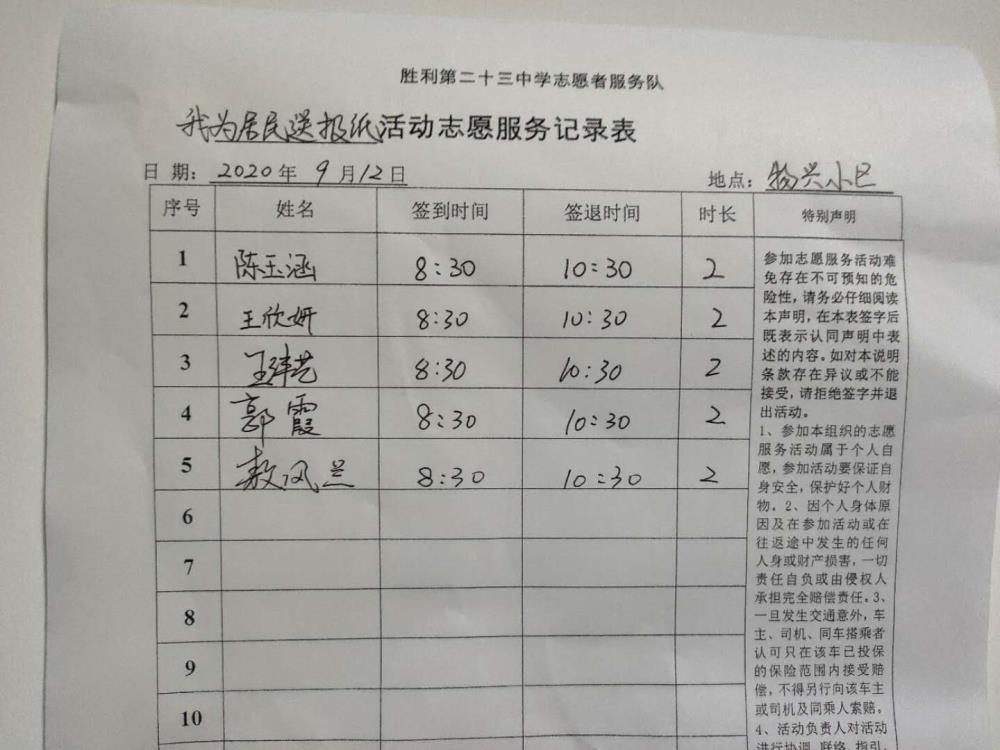 胜利第二十三中学志愿者服务队
我为居民送报纸活动志愿服务记录表
日 期: 2020年 9月12日 地点: 物兴小区
序号 姓名 签到时间 签退时间 时长 特别声明
1 陈玉涵 8:30 10:30 2
2 王欣妍 8:30 10:30 2
3 王玮艺 8:30 10:30 2
4 郭霞 8:30 10:30 2
5 敖凤兰 8:30 10:30 2
6
7
8
9
10
参加志愿服务活动难
免存在不可预知的危
险性,请务必仔细阅读
本声明,在本表签字后
既表示认同声明中表
述的内容。如对本说明
条款存在异议或不能
接受,请拒绝签字并退
出活动。
1、参加本组织的志愿
服务活动属于个人自
愿,参加活动要保证自
身安全,保护好个人财
物。2、因个人身体原
因及在参加活动或在
往返途中发生的任何
人身或财产损害,一切
责任自负或由侵权人
承担完全赔偿责任。3、
一旦发生交通意外,车
主、司机、同车搭乘者
认可只在该车已投保
的保险范围内接受赔
偿,不得另行向该车主
或司机及同乘人索赔。
4、活动负责人对活动
进行协调、联络、指引,